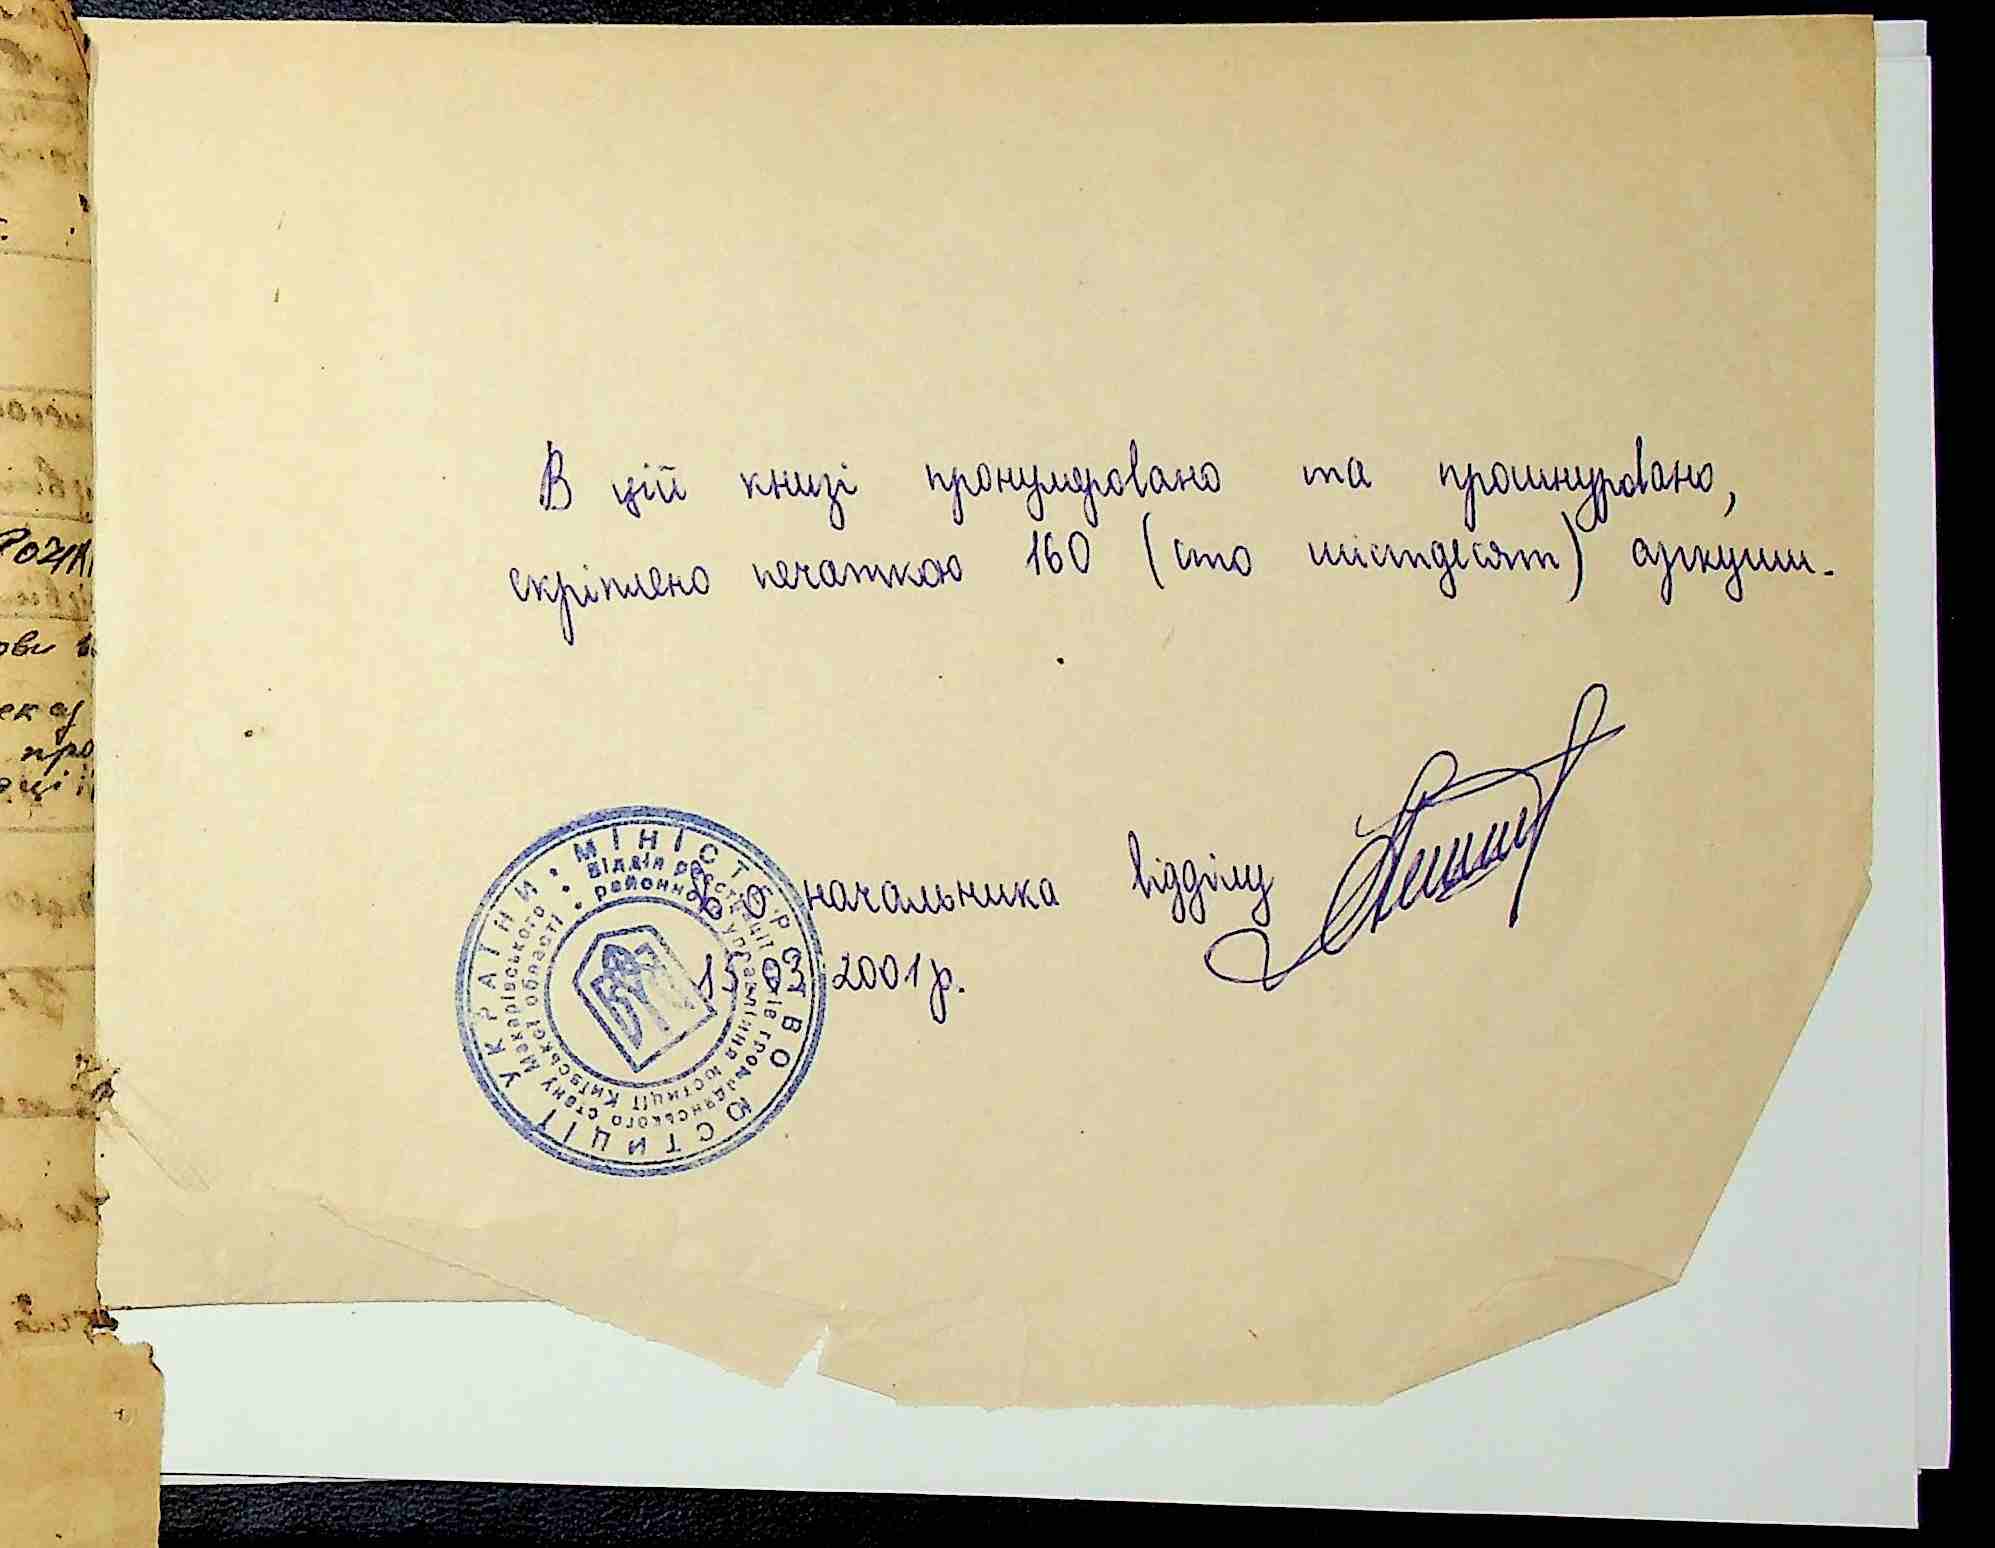 В цій книзі пронумеровано та прошнуровано,
скріплено печаткою 160 (сто шістдесят) аркуши.
В.о. начальника відділу
15.03.2001р.
МІНІСТЕРСТВО ЮСТИЦІЇ УКРАЇНИ
Відділ реєстрації актів громадянського стану Макарівського
районного управління юстиції Київської області